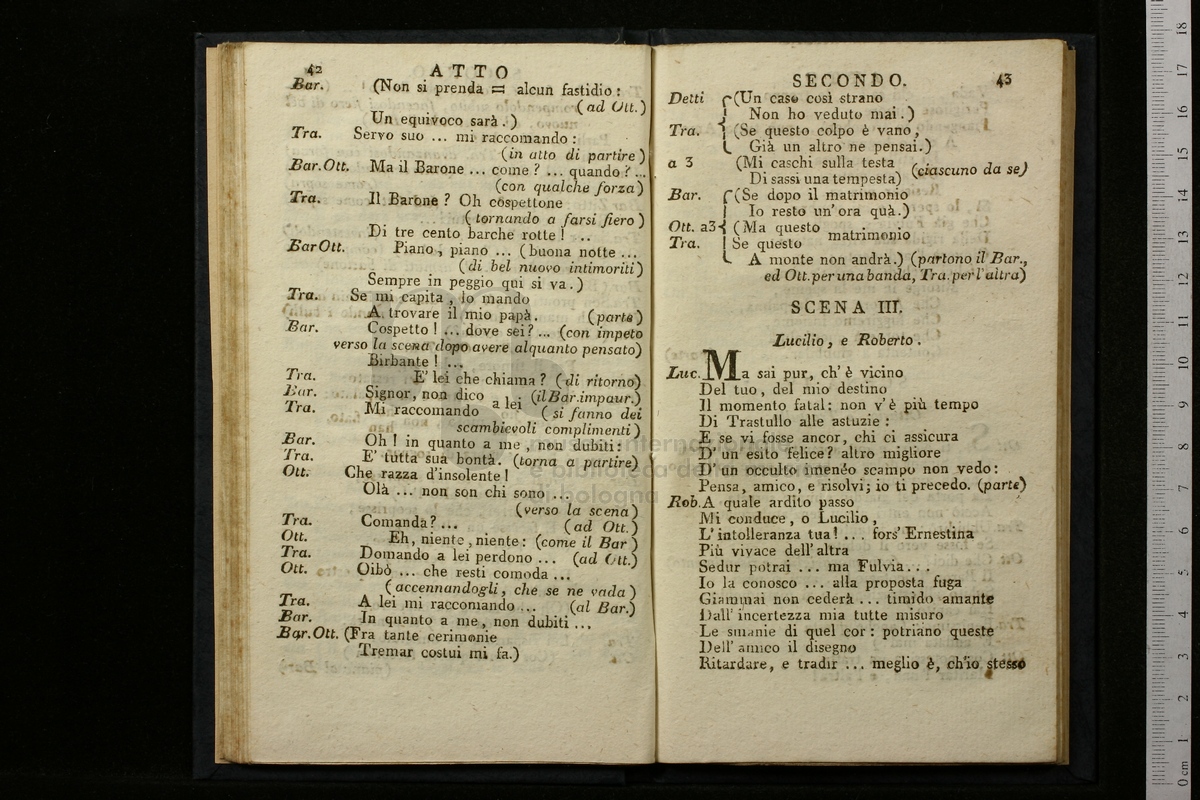 42 ATTO
Bar. (Non si prenda = alcun fastidio:
(ad Ott.)
Un equivoco sarà.)
Tra. Servo suo ... mi raccomando:
(in atto di partire)
Bar. Ott. Ma il Barone ... come? ... quando? ...
(con qualche forza)
Tra. Il Barone? Oh cospettone
(tornando a farsi fiero)
Di tre cento barche rotte! ..
Bar Ott. Piano, piano ... (buona notte ...
(di bel nuovo intimoriti)
Sempre in peggio qui si va.)
Tra. Se mi capita, lo mando
A trovare il mio papà. (parte)
Bar. Cospetto! ... dove sei? ... (con impeto
verso la scena dopo avere alquanto pensato)
Birbante! ...
Tra. E' lei che chiama? (di ritorno)
Bar. Signor, non dico (il Bar. impaur.)
a lei
Tra. Mi raccomando (si fanno dei
scambievoli complimenti)
Bar. Oh! in quanto a me, non dubiti:
Tra. E' tutta sua bontà. (torna a partire)
Ott. Che razza d'insolente!
Olà ... non son chi sono ...
(verso la scena)
Tra. Comanda? ... (ad Ott.)
Ott. Eh, niente, niente: (come il Bar)
Tra. Domando a lei perdono ... (ad Ott.)
Ott. Oibò ... che resti comoda ...
(accennandogli, che se ne vada)
Tra. A lei mi raccomando ... (al Bar.)
Bar. In quanto a me, non dubiti ...
Bar. Ott. (Fra tante cerimonie
Tremar costui mi fa.)
SECONDO. 43
Detti (Un caso così strano
Non ho veduto mai.)
Tra. (Se questo colpo è vano,
Già un altro ne pensai.)
a 3 (Mi caschi sulla testa
(ciascuno da se)
Di sassi una tempesta)
Bar. (Se dopo il matrimonio
Io resto un'ora quà.)
Ott. a3 (Ma questo
matrimonio
Tra. Se questo
A monte non andrà.) (partono il Bar.,
ed Ott. per una banda, Tra. per l'altra)
SCENA III.
Lucilio, e Roberto.
Luc. Ma sai pur, ch'è vicino
Del tuo, del mio destino
Il momento fatal: non v'è più tempo
Di Trastullo alle astuzie:
E se vi fosse ancor, chi ci assicura
D'un esito felice? altro migliore
D'un occulto imenéo scampo non vedo:
Pensa, amico, e risolvi; io ti precedo. (parte)
Rob. A quale ardito passo
Mi conduce, o Lucilio,
L'intolleranza tua! ... fors' Ernestina
Più vivace dell'altra
Sedur potrai ... ma Fulvia...
Io la conosco ... alla proposta fuga
Giammai non cederà ... timido amante
Dall'incertezza mia tutte misuro
Le smanie di quel cor: potriano queste
Dell'amico il disegno
Ritardare, e tradir ... meglio è, ch'io stesso